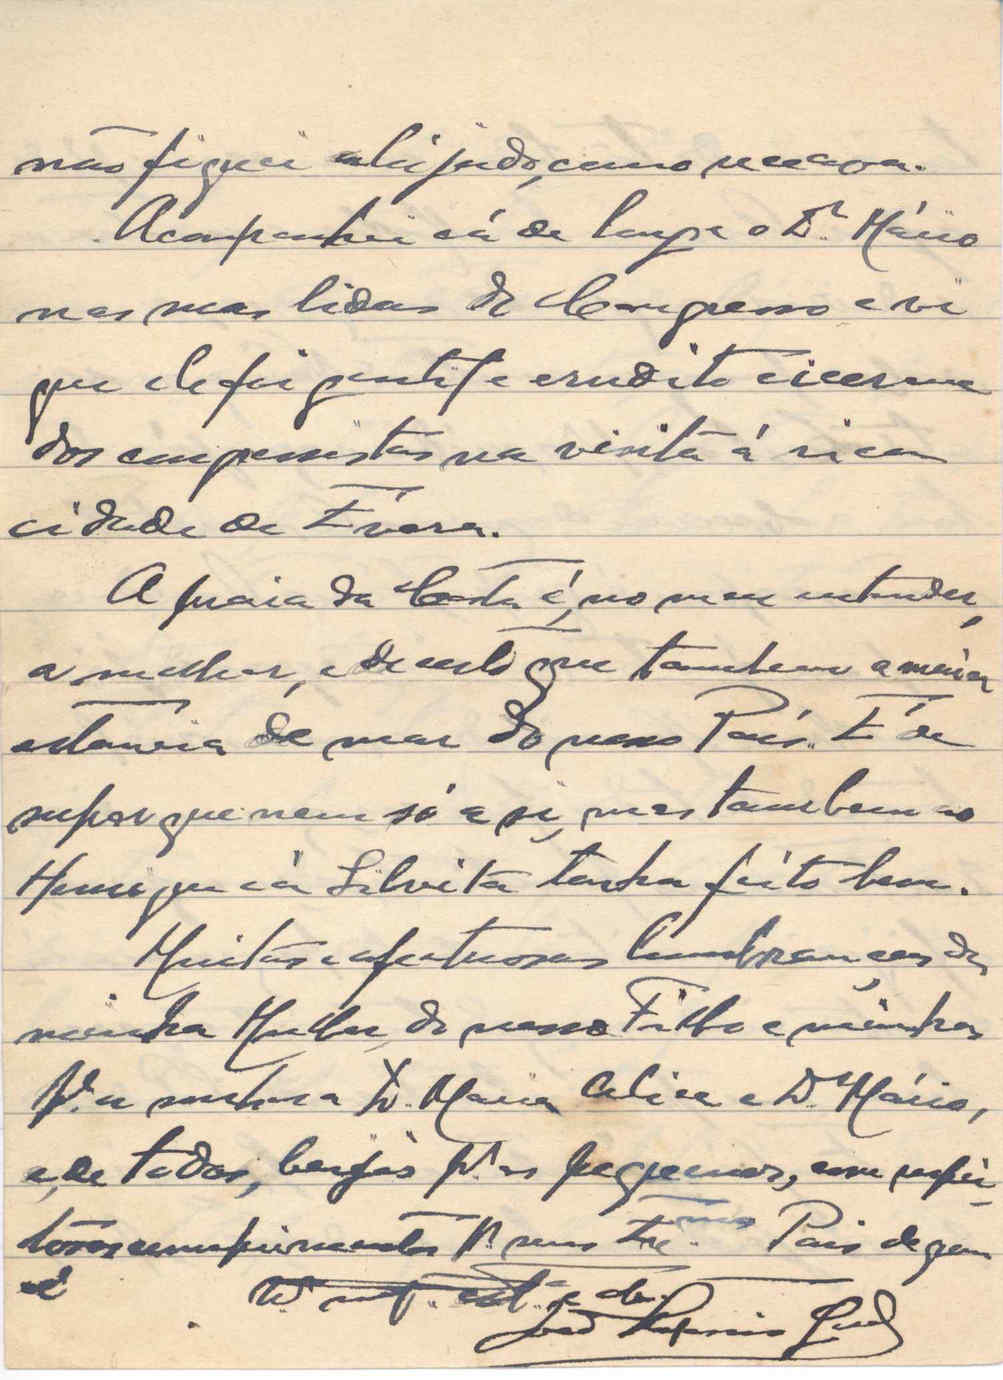 não fiquei aleijado, como receava.
Acompanhei cá de longe o Dr. Mário
nas suas lidas do Congresso e vi
que ele foi gentil e erudito cicerone
dos congressistas na visita á rica
cidade de Évora.
A praia da Costa é, no meu entender,
a melhor, e decerto que tambem a maior
estancia de mar do nosso País. É de
supor que nem só a si, mas tambem ao
Henrique e á Silvita tenha feito bem.
Muitas e afectuosas lembranças de
minha Mulher, do nosso Filho e minhas
pª a senhora D. Maria Alice e Dr. Mário,
e, de todos, beijos pª os pequenos, com respei-
tosos cumprimentos pª seus Exmos Pais de quem
é
José